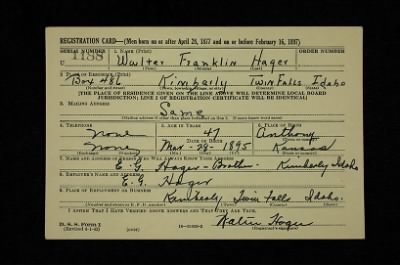 REGISTRATION CARD—(Men born on or after April 28, 1877 and on or before February 16, 1897)
SERIAL NUMBER 1. NAME (Print) ORDER NUMBER
U 1188 Walter Franklin Hager
2. PLACE OF RESIDENCE (Print)
Box 486 Kimberly Twin Falls Idaho
[THE PLACE OF RESIDENCE GIVEN ON THE LINE ABOVE WILL DETERMINE LOCAL BOARD
JURISDICTION; LINE 2 OF REGISTRATION CERTIFICATE WILL BE IDENTICAL]
3. MAILING ADDRESS
Same
[Mailing address if other than place indicated on line 2. If same insert word same]
4. TELEPHONE 5. AGE IN YEARS 6. PLACE OF BIRTH
none 47 Anthony
DATE OF BIRTH
none Mar. 28 - 1895 Kansas
7. NAME AND ADDRESS OF PERSON WHO WILL ALWAYS KNOW YOUR ADDRESS
E. G. Hager - Brother - Kimberly Idaho
8. EMPLOYER'S NAME AND ADDRESS
E. G. Hager
9. PLACE OF EMPLOYMENT OR BUSINESS
Kimberly Twin Falls Idaho.
I AFFIRM THAT I HAVE VERIFIED ABOVE ANSWERS AND THAT THEY ARE TRUE.
D. S. S. Form 1
(Revised 4-1-42) (over) Walter Hager